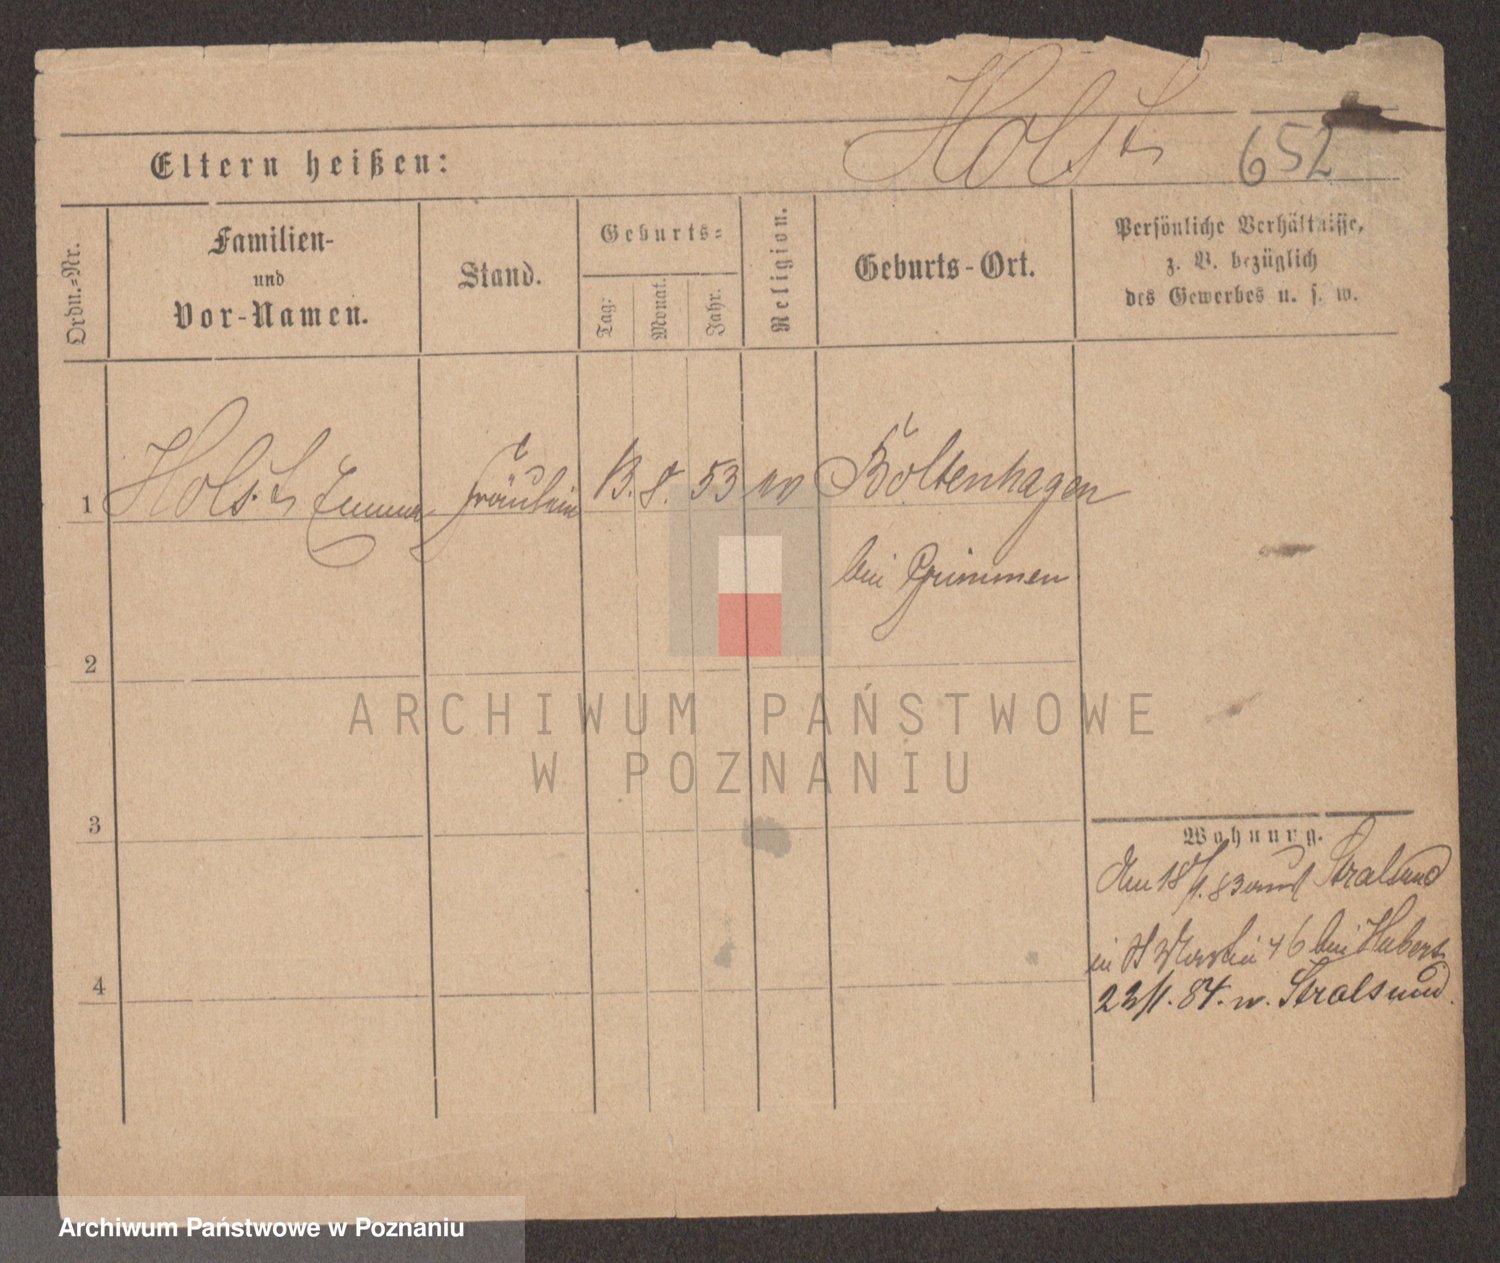 Holst 652
Eltern heißen:
Ordn.-Nr.
Familien-
und
Vor-Namen.
Stand.
Geburts-
Tag:
Monat.
Jahr.
Religion.
Geburts-Ort.
Persönliche Verhältnisse,
z. B. bezüglich
des Gewerbes u. s. w.
1 Holst Emma Fräulein 13. 8. 53 ev Boltenhagen
bei Grimmen
2
3
4
Wohnung.
Am 18/1. 83 Stralsund
in St Martin 46 bei Hubert
22/1. 84. n. Stralsund.
ARCHIWUM PAŃSTWOWE
W POZNANIU
Archiwum Państwowe w Poznaniu